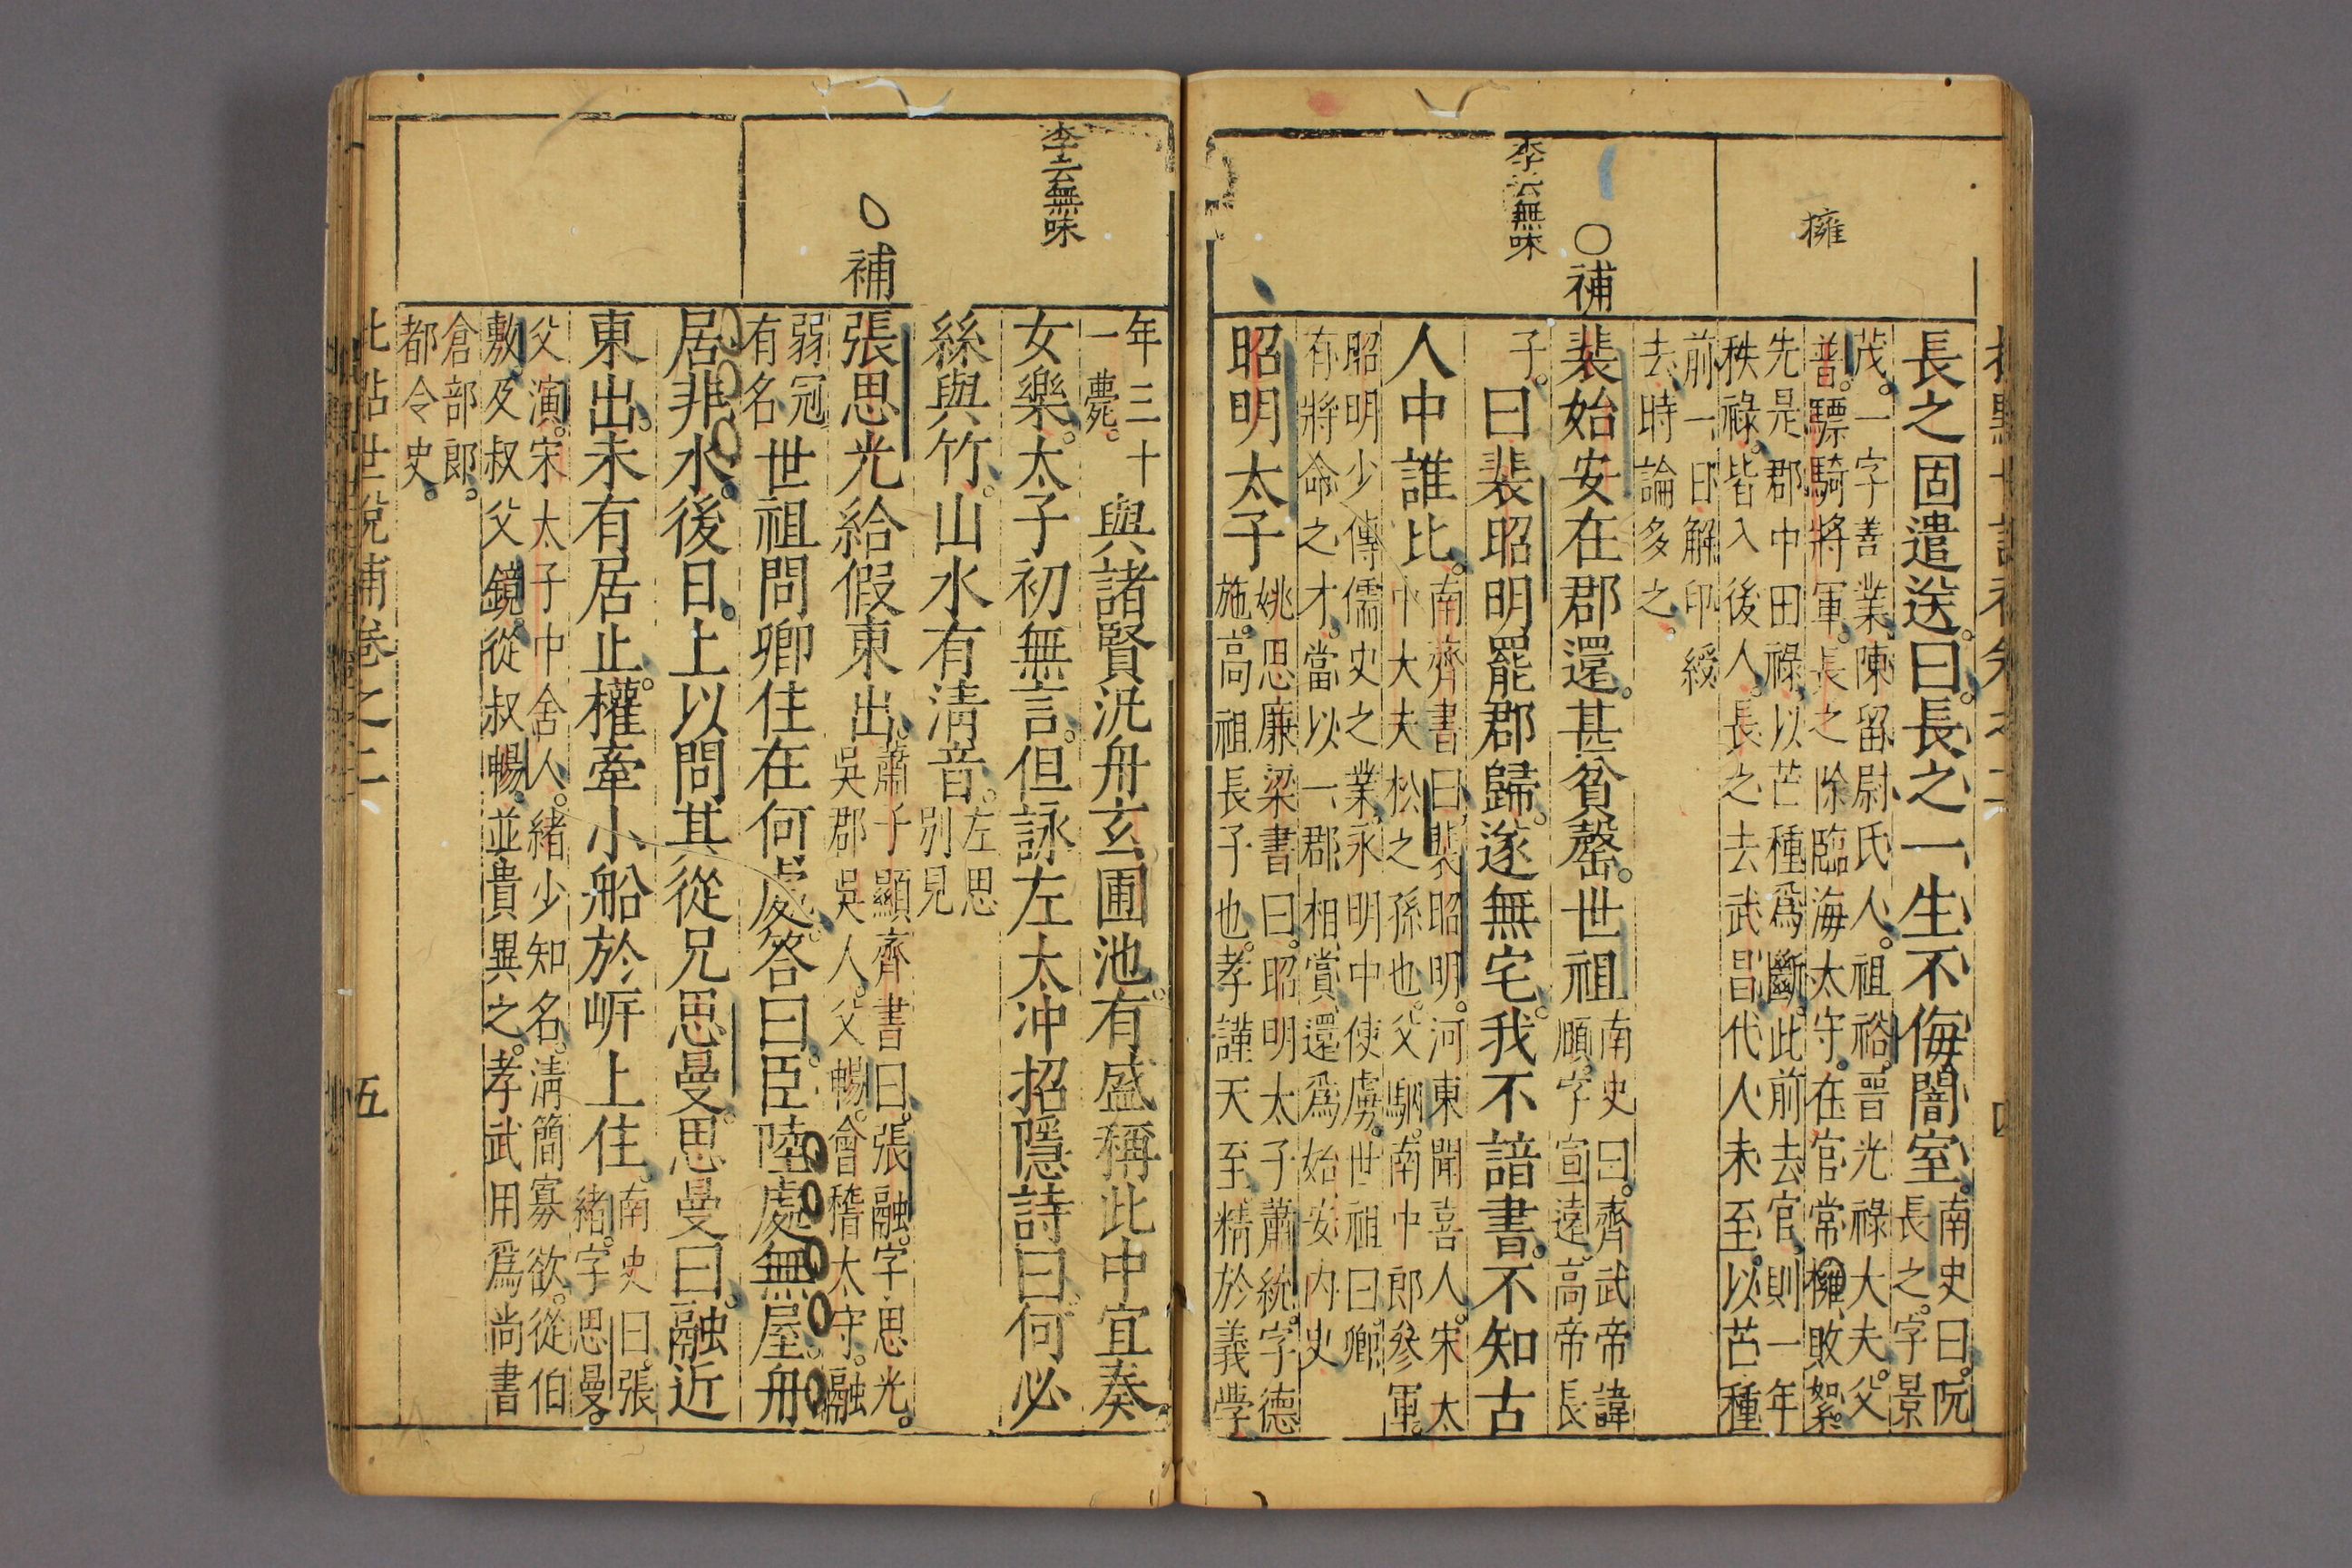 擁
○補
李云無味
長之固遣送。曰。長之一生不侮闇室。南史曰。阮
長之。字景
茂。一字善業。陳留尉氏人。祖裕。晉光祿大夫。父
普。驃騎將軍。長之除臨海太守。在官常擁敗絮。
先是郡中田祿。以芒種爲斷。此前去官。則一年
秩祿。皆入後人。長之去武昌。代人未至。以芒種
前一日解印綬
去。時論多之。
裴始安在郡還。甚貧罄。世祖南史曰。齊武帝諱
頤。字宣遠。高帝長
子。曰裴昭明罷郡歸。遂無宅。我不諳書。不知古
人中誰比。南齊書曰。裴昭明。河東聞喜人。宋太
中大夫松之孫也。父駰。南中郎參軍。
昭明少傳儒史之業。永明中使虜。世祖曰。卿
有將命之才。當以一郡相賞。還爲始安內史
昭明太子姚思廉梁書曰。昭明太子蕭統。字德
施。高祖長子也。孝謹天至。精於義學
李云無味
○補
年三十
一。薨。
與諸賢泛舟玄圃池。有盛稱此中宜奏
女樂。太子初無言。但詠左太冲招隱詩曰。何必
絲與竹。山水有清音。左思
別見
張思光給假東出。蕭子顯齊書曰。張融。字思光。
吳郡吳人。父暢。會稽太守。融
弱冠
有名
世祖問卿住在何處。答曰。臣陸處無屋。舟
居非水。後日。上以問其從兄思曼。思曼曰。融近
東出。未有居止。權牽小船於岸上住。南史曰。張
緒。字思曼。
父演。宋太子中舍人。緒少知名。清簡寡欲。從伯
敷。及叔父鏡。從叔暢。並貴異之。孝武用爲尚書
倉部郎。
都令史。
批點世說補卷之二
五